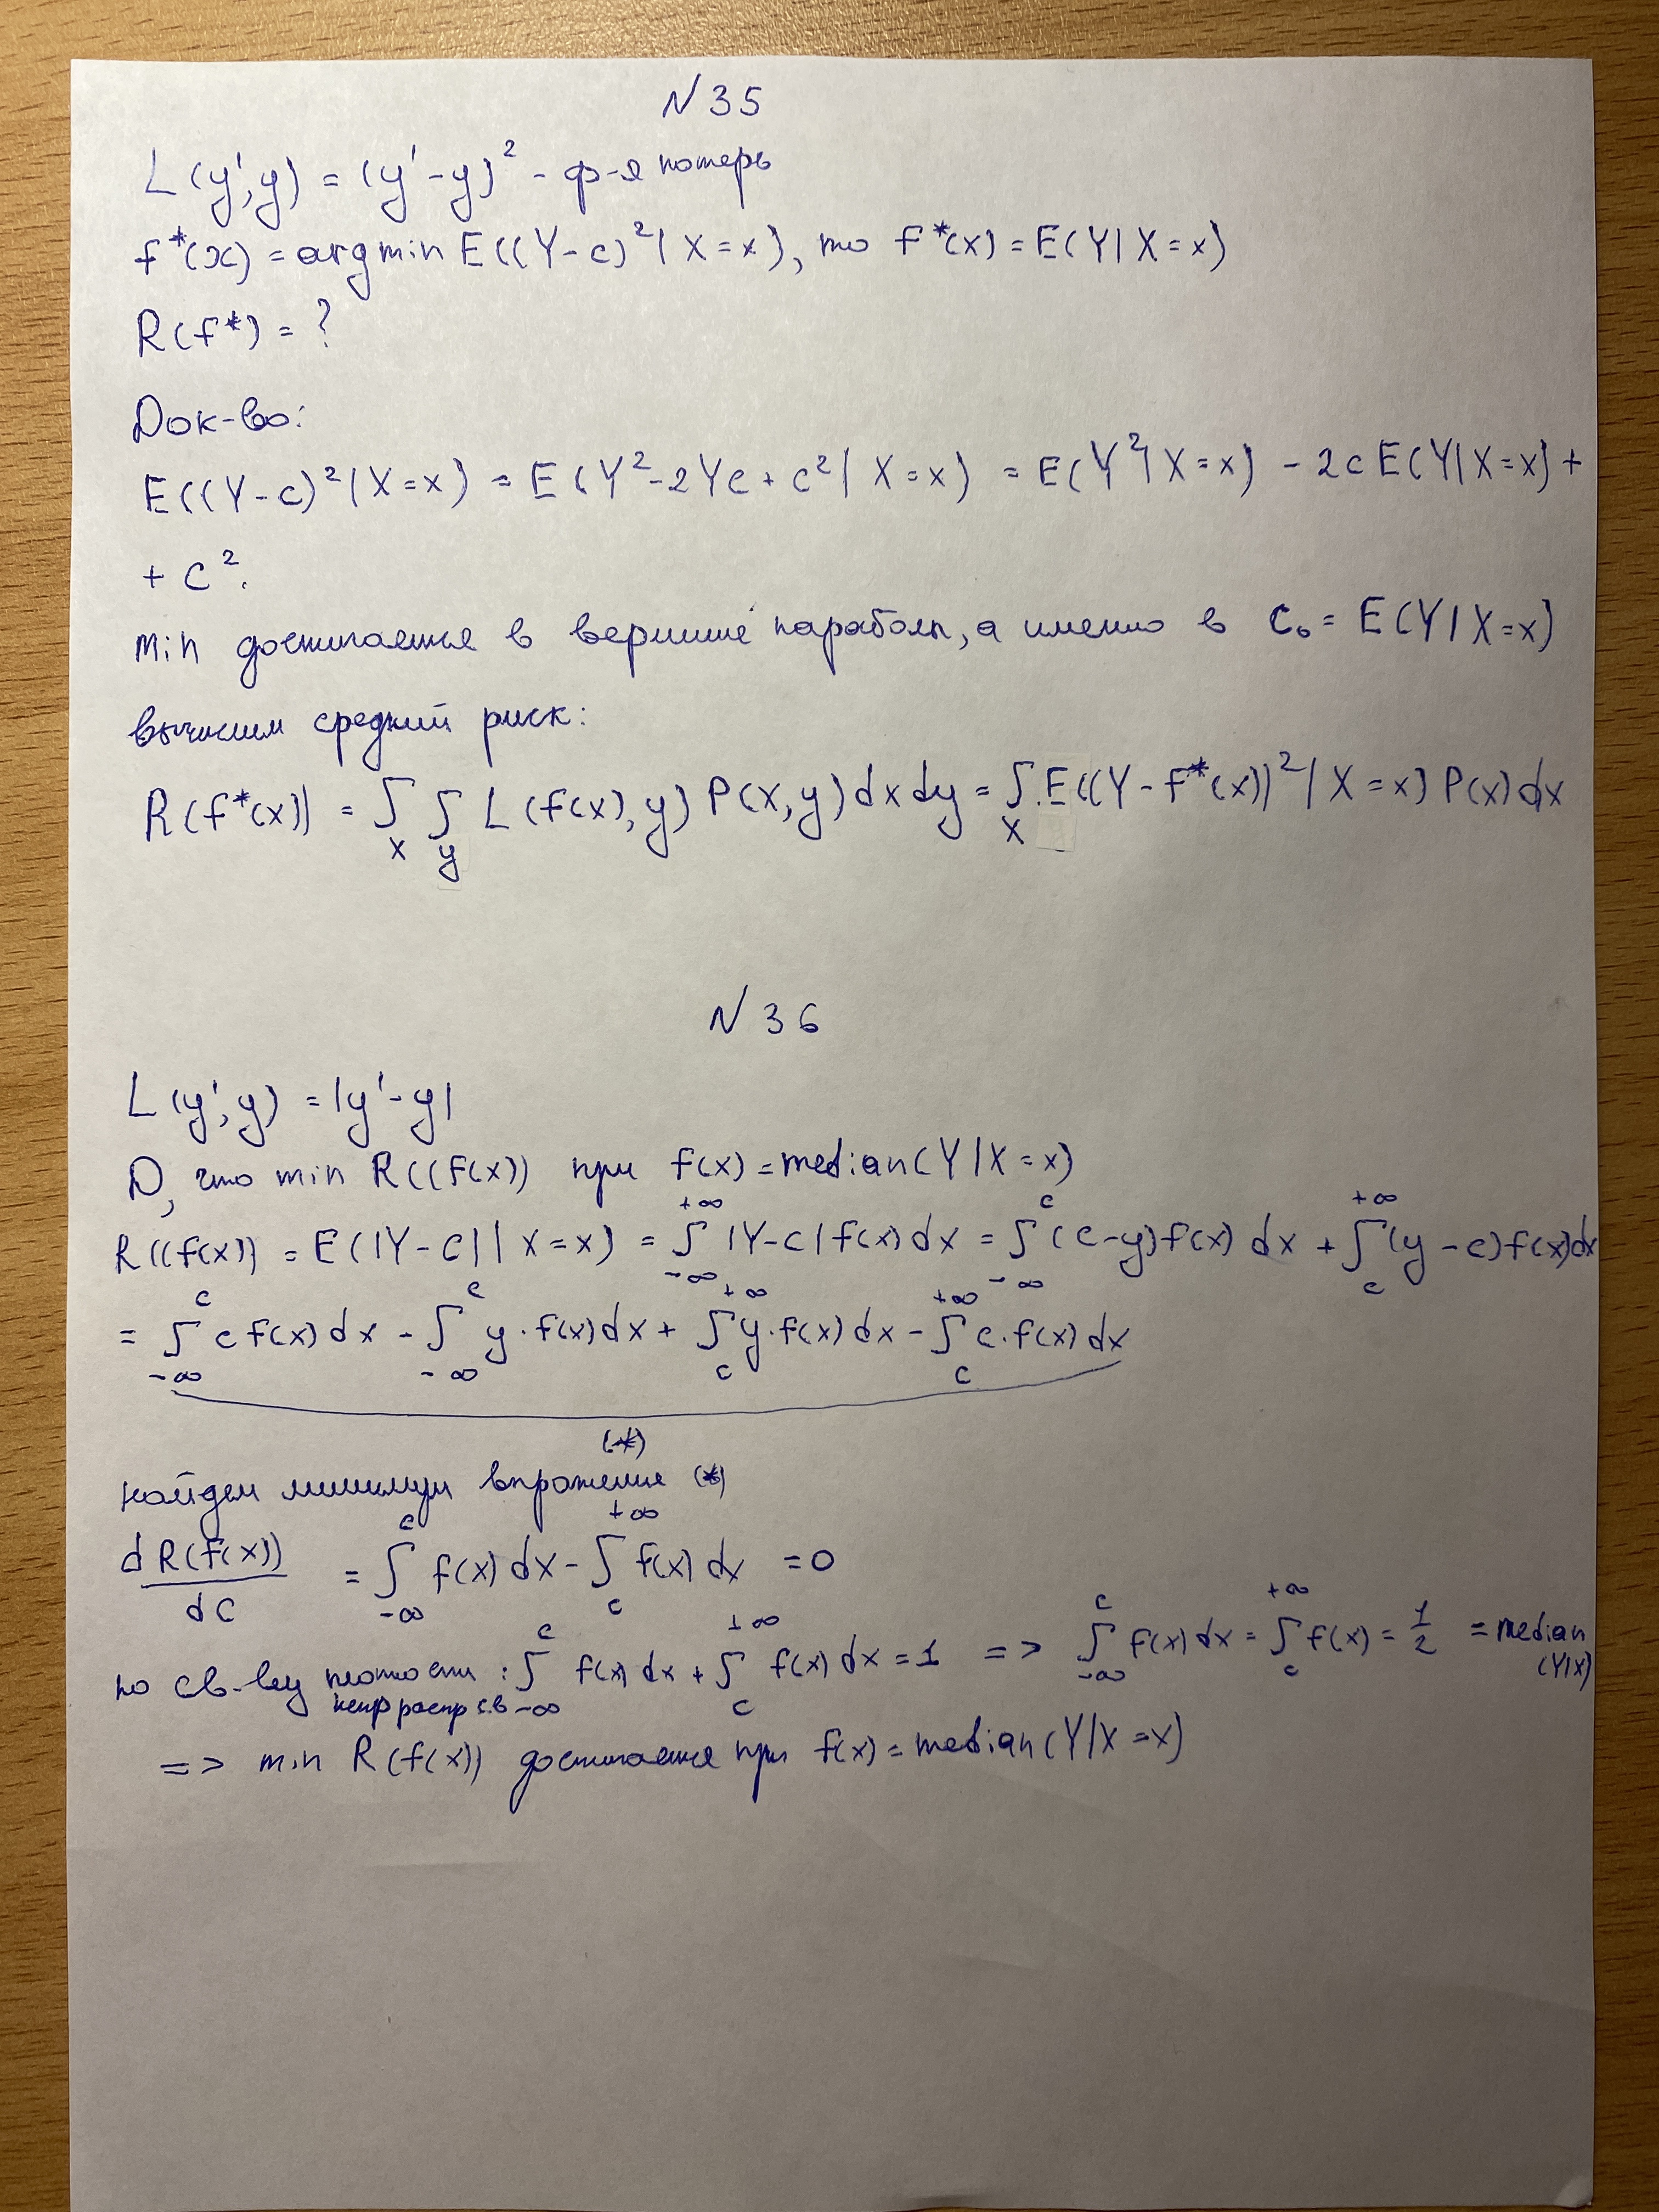 N 35
L(y', y) = (y' - y)² - ф-я потерь
f*(x) = argmin E((Y-c)² | X = x), то f*(x) = E(Y | X = x)
R(f*) = ?
Док-во:
E((Y-c)² | X=x) = E(Y² - 2Yc + c² | X = x) = E(Y² | X = x) - 2c E(Y | X = x) +
+ c².
min достигается в вершине параболы, а именно в c₀ = E(Y | X = x)
вычислим средний риск:
R(f*(x)) = ∫_X ∫_y L(f(x), y) P(x, y) dx dy = ∫_X E((Y - f*(x))² | X = x) P(x) dx
N 36
L(y', y) = |y' - y|
D, что min R((f(x)) при f(x) = median(Y | X = x)
R((f(x)) = E(|Y - c| | X = x) = ∫_{-∞}^{+∞} |Y - c| f(x) dx = ∫_{-∞}^{c} (c - y) f(x) dx + ∫_{c}^{+∞} (y - c) f(x) dx
= ∫_{-∞}^{c} c f(x) dx - ∫_{-∞}^{c} y · f(x) dx + ∫_{c}^{+∞} y · f(x) dx - ∫_{c}^{+∞} c · f(x) dx
(*)
найдем минимум выражения (*)
dR(f(x))/dc = ∫_{-∞}^{c} f(x) dx - ∫_{c}^{+∞} f(x) dx = 0
по св-ву плотности: ∫_{-∞}^{c} f(x) dx + ∫_{c}^{+∞} f(x) dx = 1 => ∫_{-∞}^{c} f(x) dx = ∫_{c}^{+∞} f(x) = 1/2 = median (Y|X)
непр распр с.в
=> min R(f(x)) достигается при f(x) = median(Y | X = x)